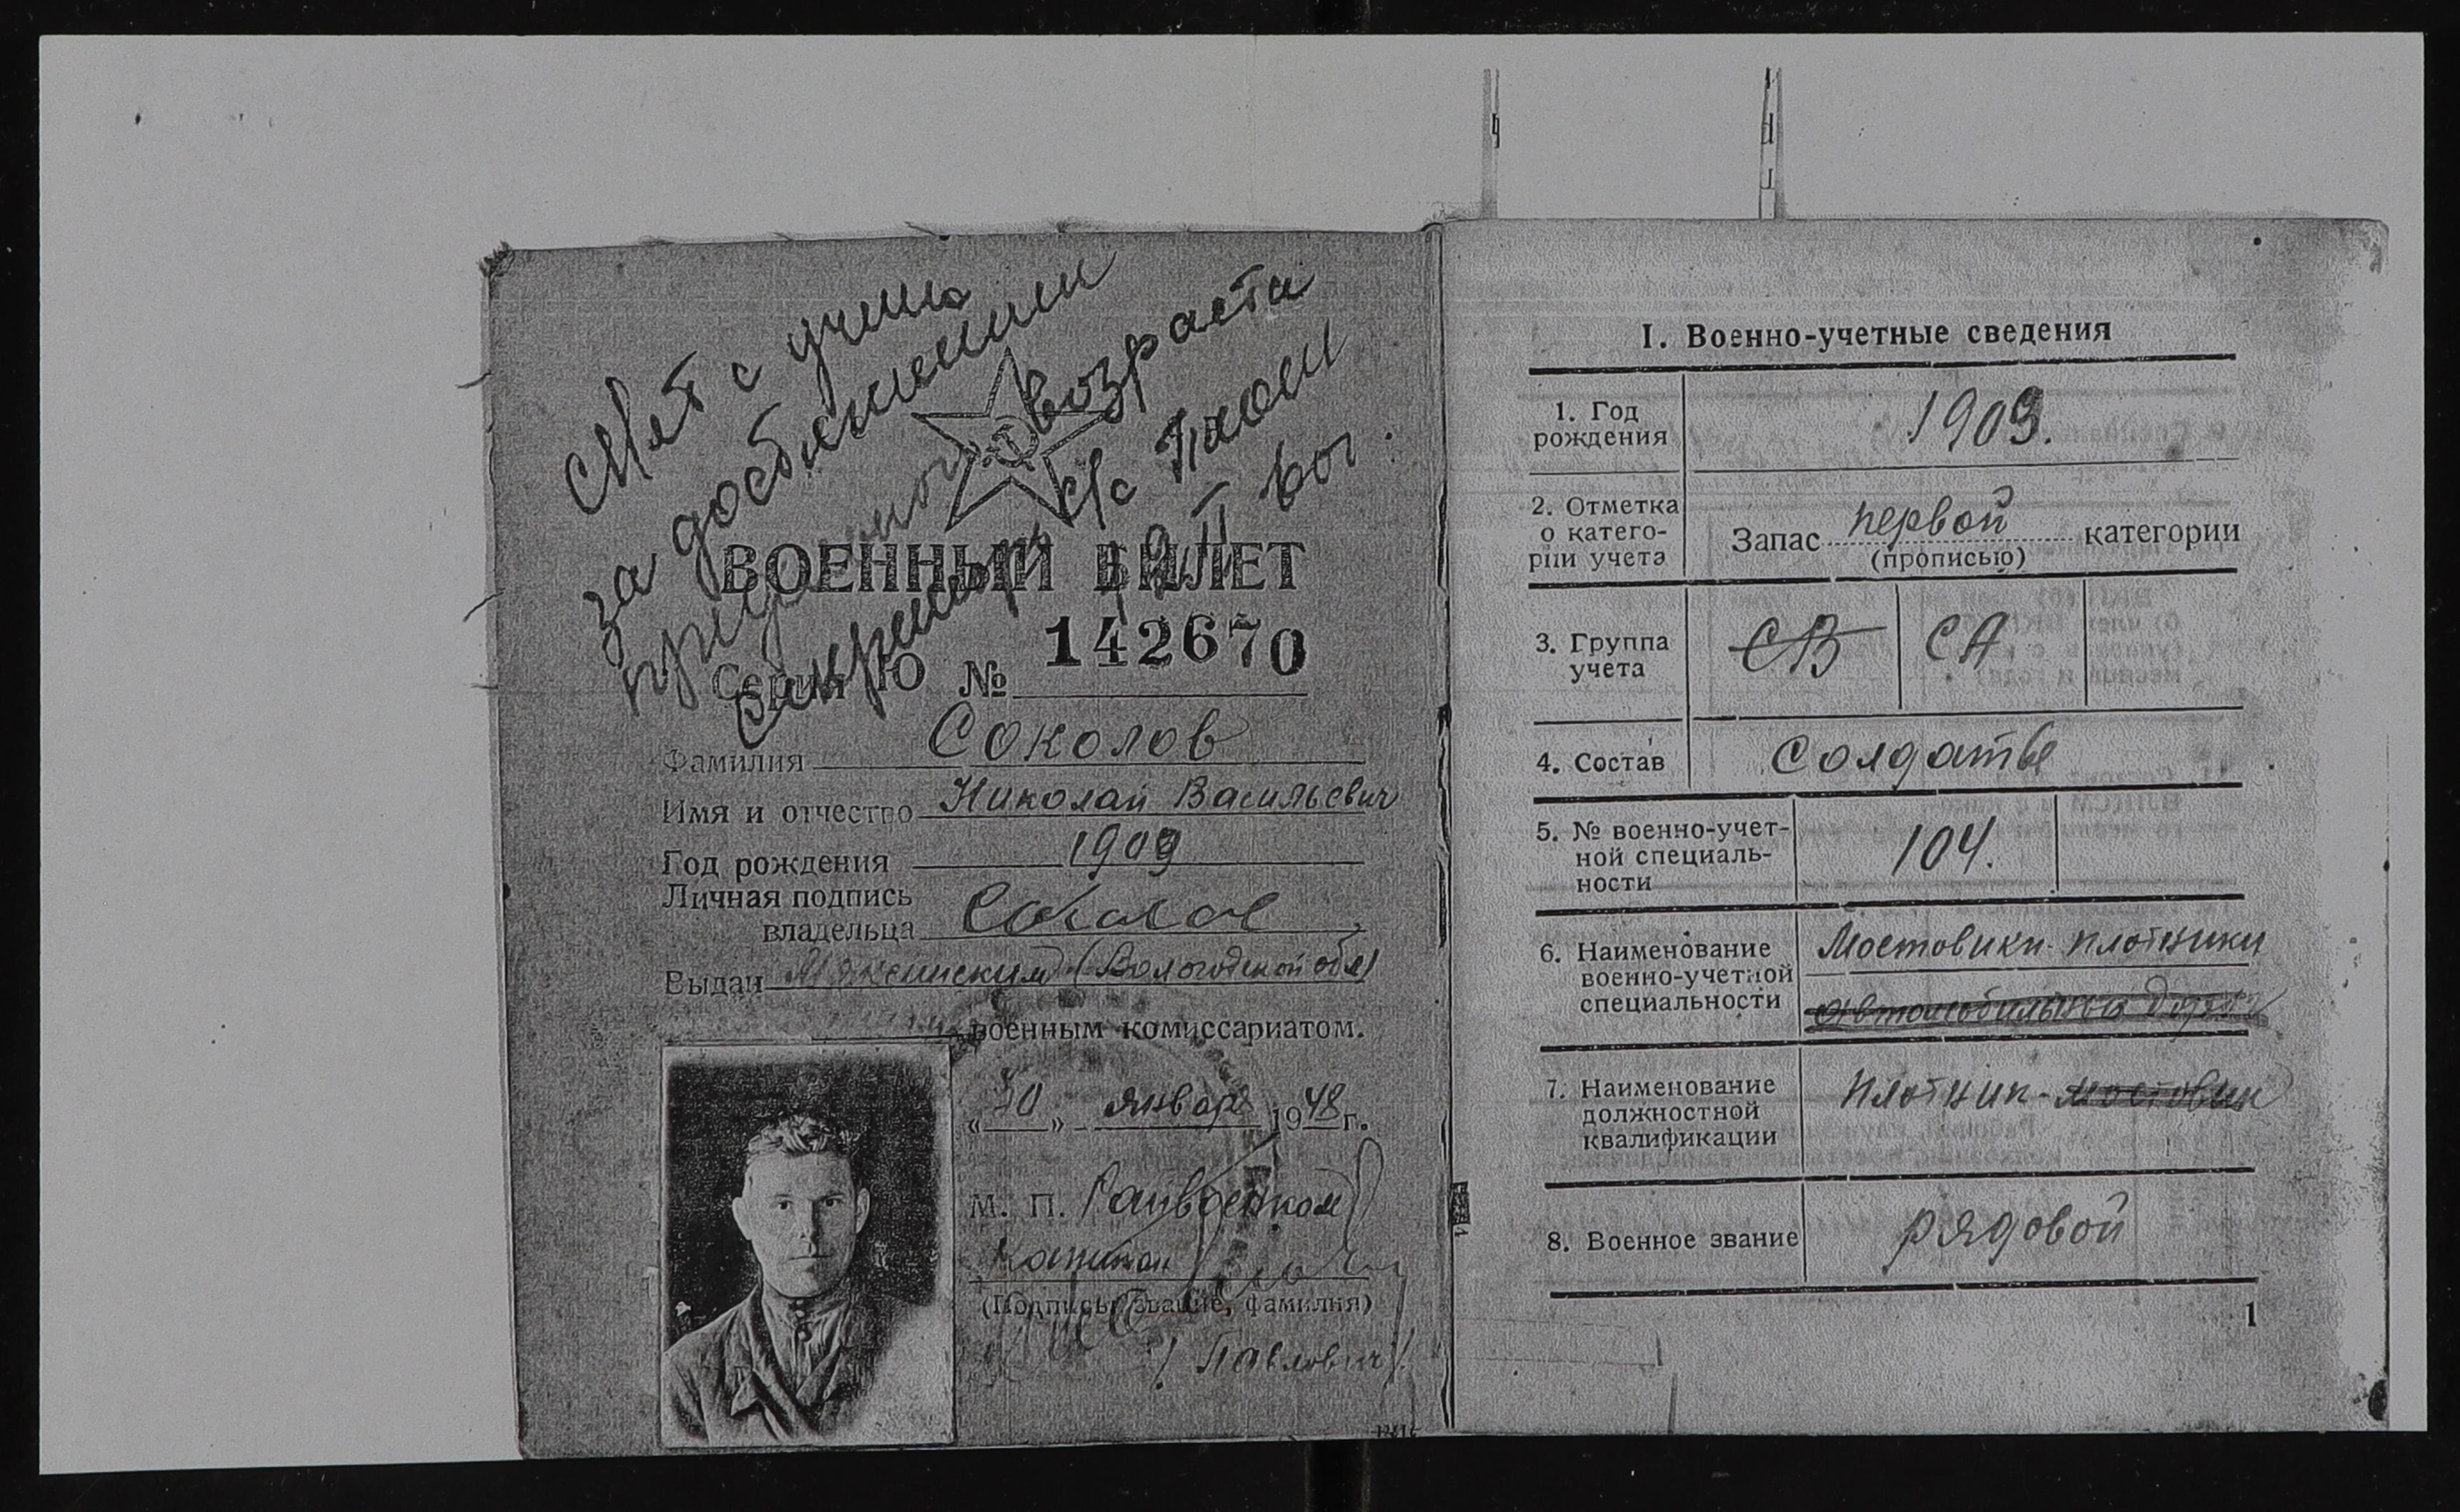 Снят с учета
за достижением
возраста
с/с
ВОЕННЫЙ БИЛЕТ
Серия Ю № 142670
Фамилия Соколов
Имя и отчество Николай Васильевич
Год рождения 1909
Личная подпись
владельца Соколов
Выдан Мяксинским (Вологодской обл)
военным комиссариатом.
«30» января 1948 г.
М. П. Райвоенком
Капитан
(Подпись, звание, фамилия)
/Павлович/
I. Военно-учетные сведения
1. Год
рождения
1909.
2. Отметка
о катего-
рии учета
Запас первой категории
(прописью)
3. Группа
учета
СВ СА
4. Состав
Солдаты
5. № военно-учет-
ной специаль-
ности
104.
6. Наименование
военно-учетной
специальности
Мостовики-плотники
7. Наименование
должностной
квалификации
Плотник-мостовик
8. Военное звание
рядовой
1